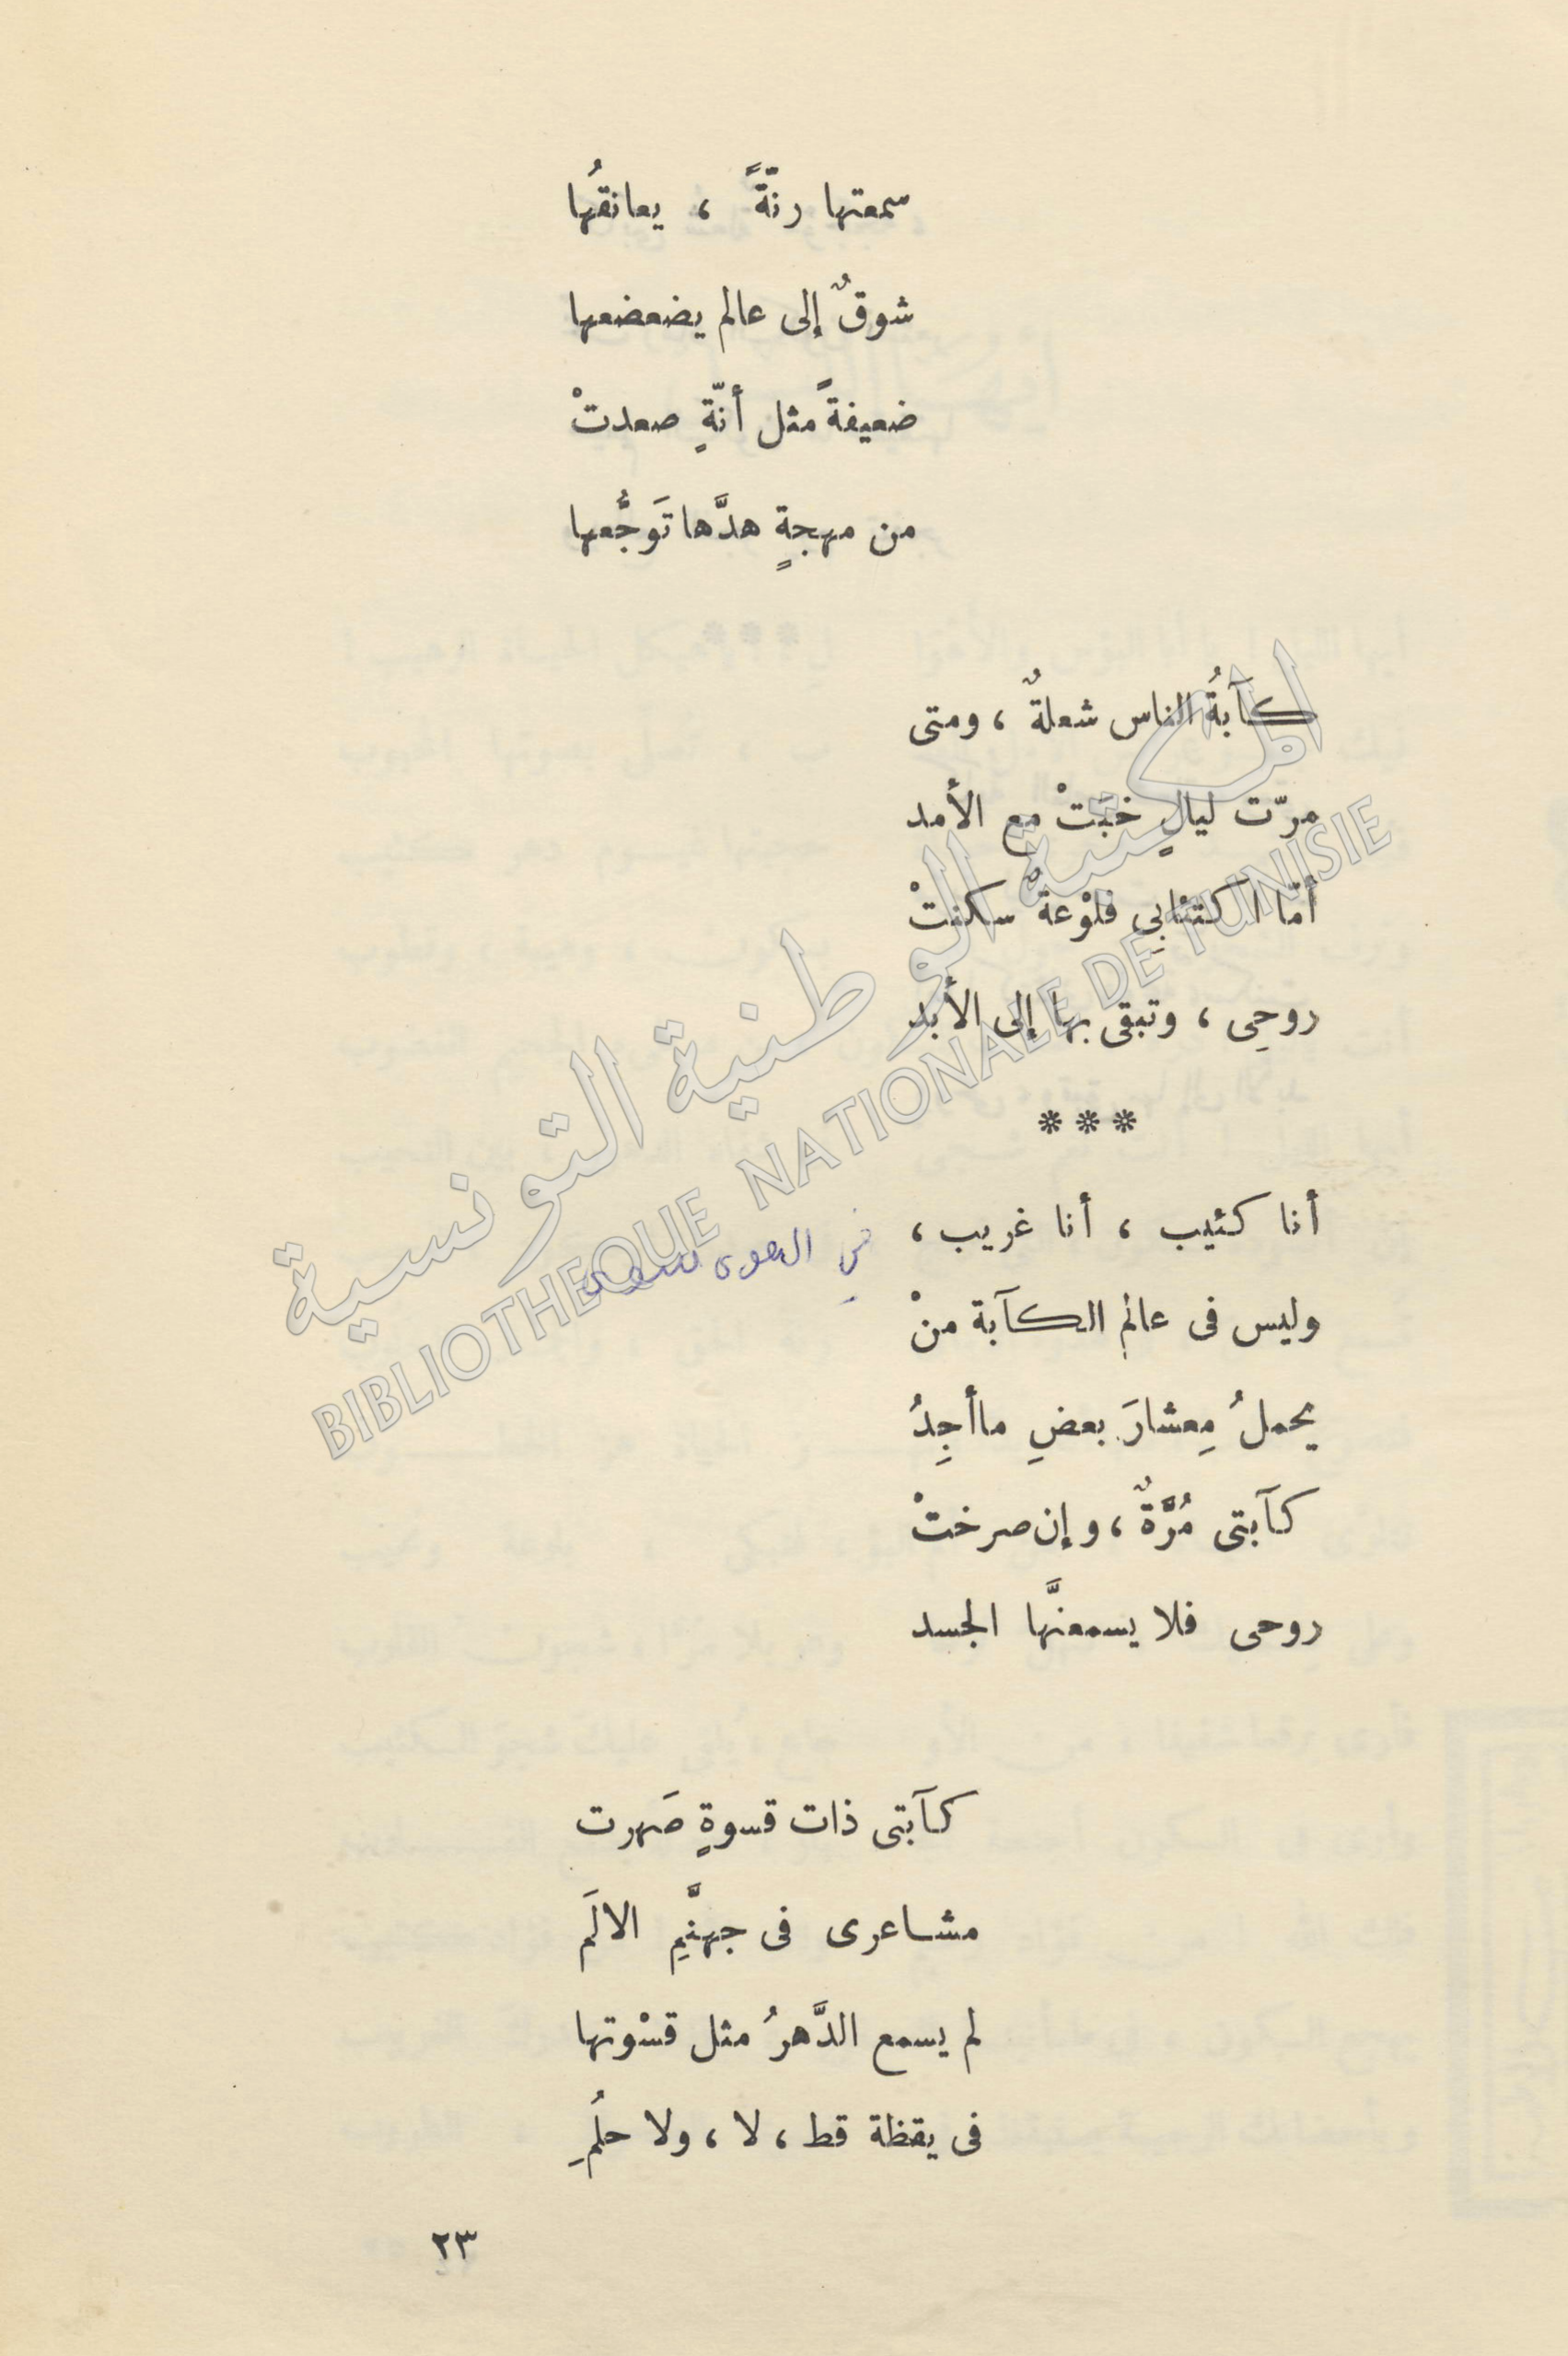 سمعتها رنّةً ، يعانقُها
شوقٌ إلى عالم يضعضعها
ضعيفةً مثل أنّةٍ صعدتْ
من مهجةٍ هدَّها تَوَجُّعها
كآبةُ الناس شعلةٌ ، ومتى
مرّت ليالٍ خبَتْ مع الأمد
أمّا اكتئابِى فلوْعةٌ سكنتْ
روحِى ، وتبقى بها إلى الأبد
***
أنا كئيب ، أنا غريب ،
في الهوى
وليس فى عالم الكآبة منْ
يحملُ مِعشارَ بعضِ ماأجِدُ
كآبتى مُرَّةٌ ، وإن صرختْ
روحى فلا يسمعنَّها الجسد
كآبتى ذات قسوةٍ صَهرت
مشاعرى فى جهنَّمِ الالَم
لم يسمع الدَّهرُ مثل قسْوتها
فى يقظة قط ، لا ، ولا حلُمِ
٢٣
المكتبة الوطنية التونسية
BIBLIOTHEQUE NATIONALE DE TUNISIE